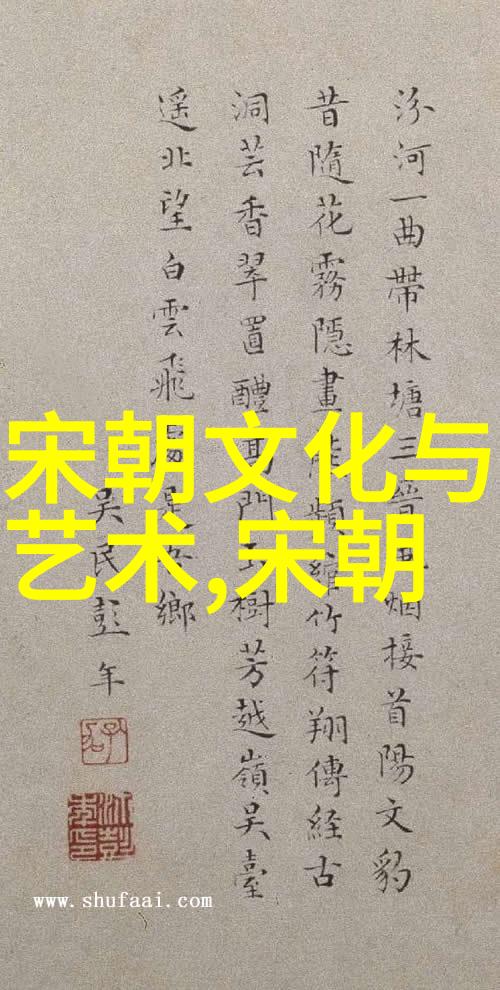 汾河一曲帶林塘三晉烟接首陽文豹
昔隨花霧隱畫頻綰竹符翔傳經古
洞芸香翠置醴門樹芳越嶺吳臺
遥北望白雲飛是鄉
吳民彭年
宋朝文化与
艺术,宋朝
www.shufaai.com